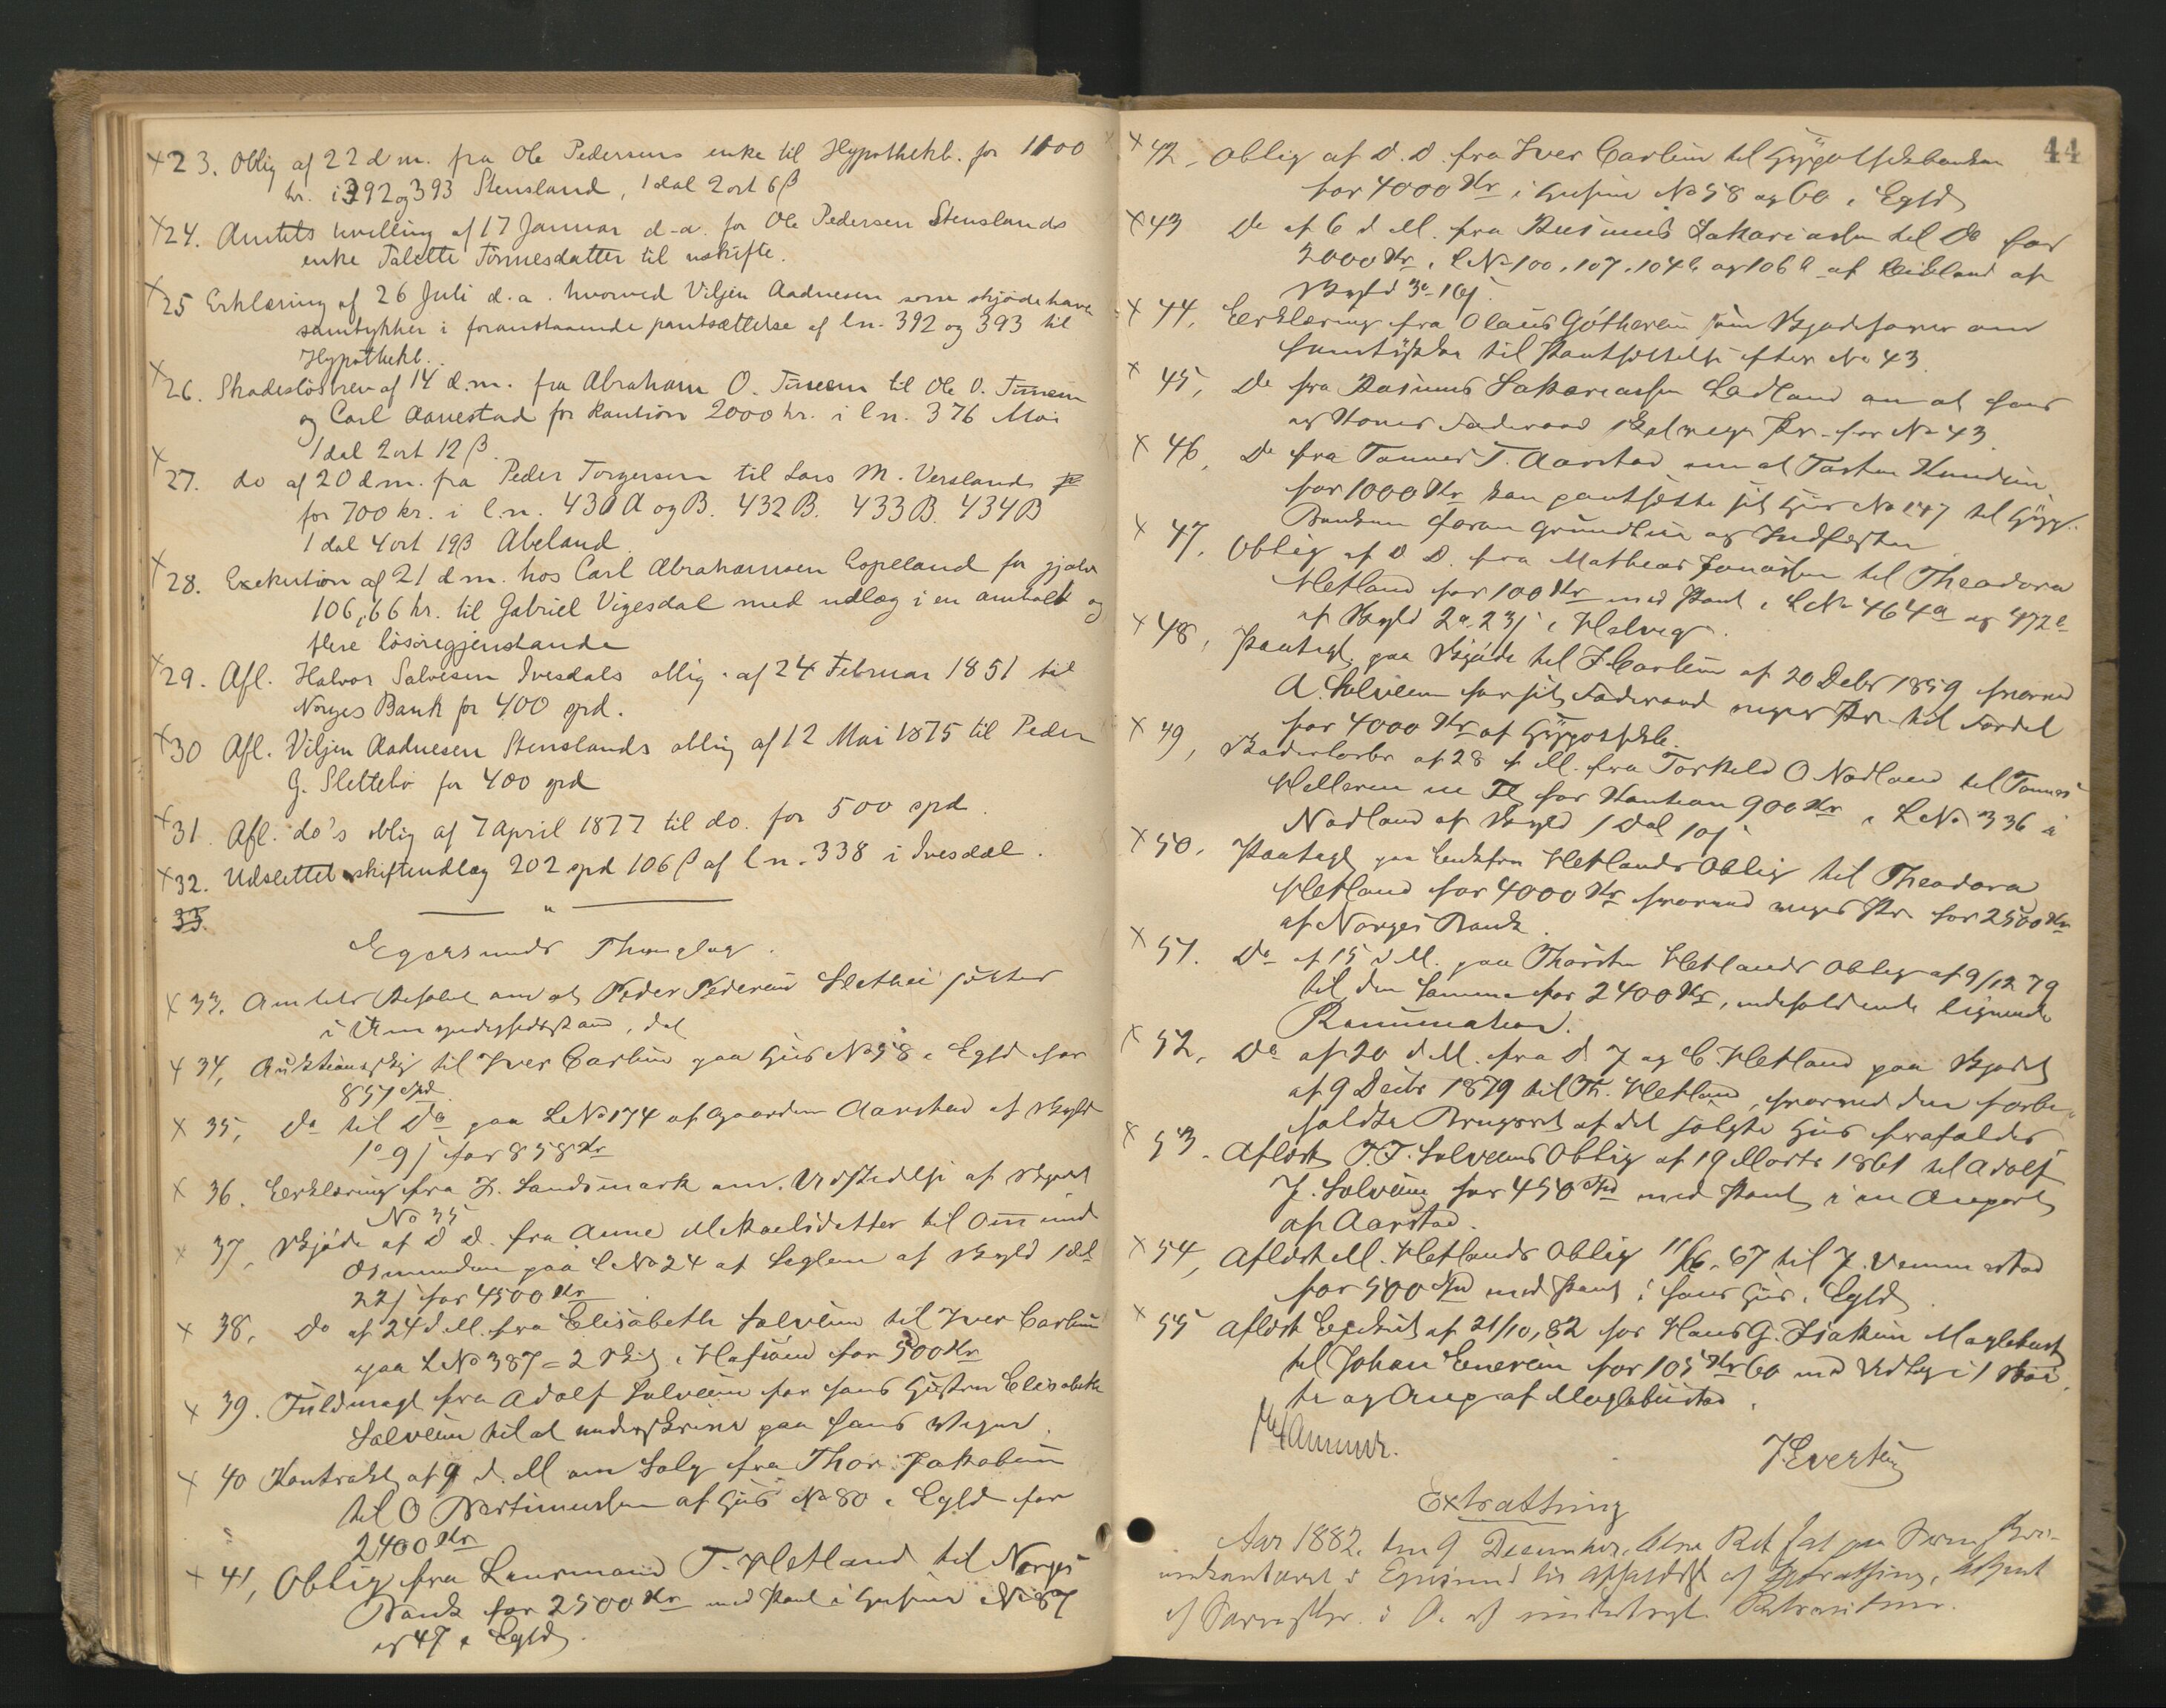 x 23. Oblig af 22 d m. fra Ole Pedersens enke til Hypothekb. for 1100
kr. i 392 og 393 Stensland, 1 dal 2 ort 6 β
x 24. Amtets bevilling af 17 Januar d-a. for Ole Pedersen Stenslands
enke Talette Tönnesdatter til uskifte.
x 25 Erklæring af 26 Juli d.a. hvorved Viljen Aadnesen som skjödehaver
samtykker i foranstaaende pantsættelse af ln. 392 og 393 til
Hypothekb.
x 26. Skadeslösbrev af 14 d.m. fra Abraham O. til Ole O.
og Carl Aanestad for Kaution 2000 kr. i ln. 376 Moi
1 dal 2 ort 12 β
x 27. do af 20 d m. fra Peder Torgersen til Lars M. Versland
for 700 kr. i l.n. 430 A og B. 432 B. 433 B. 434 B
1 dal 4 ort 19 β Abeland
x 28. Exekution af 21 d m. hos Carl Abrahamsen Eopeland for gjæld
106,66 kr. til Gabriel Vigesdal med udlæg i en ambolt og
flere lösöregjenstande
x 29. Afl. Halvor Salvesen Ivesdals oblig. af 24 Februar 1851 til
Norges Bank for 400 spd.
x 30 Afl. Viljen Aadnesen Stenslands oblig af 12 Mai 1875 til Peder
G. Slettebö for 400 spd
x 31. Afl. do's oblig af 7 April 1877 til do. for 500 spd.
x 32. Udslettet skifteudlæg 202 spd 106 β af ln. 338 i Ivesdal.
33.
Egersunds Thinglag.
x 33. Amtets Resolut. om at Peder Pedersen Slethei sættes
i Umyndighedsstand, dat
x 34, Auktionsskj til Iver Carlsen paa Huus No 58 i Egsd for
857 Spd.
x 35, Do til Do paa LNo 174 af Gaarden Aarstad af Skyld
1 o 9 β for 858 Kr
x 36. Erklæring fra H. Landsmark om Udstedelse af Skjödet
No 35
x 37, Skjöde af D D. fra Anne Mekaelsdatter til Ommund
Osmundsen paa LNo 24 af Leglem af Skyld 1 dal
22 β for 4500 Kr
x 38, Do af 24 d M. fra Elisabeth Salvesen til Iver Carlsen
paa LNo 387 = 2 i Hafsöen for 500 Kr
x 39. Fuldmagt fra Adolf Salvesen for hans Hustru Elisabeth
Salvesen til at underskrive paa hans Vegne.
x 40 Kontrakt af 9 d. M om Salg fra Thor Jakobsen
til O Bertinussen af Huus No 80 i Egsd for
2400 Kr
x 41, Oblig fra Lensmand T. Hetland til Norges
Bank for 2500 Kr med Pant i Husene No 87
og 47 i Egsd.
44
x 42, Oblig af D. D. fra Iver Carlsen til Hypotekbanken
for 4000 Kr i Husene No 58 og 60 i Egsd
x 43 Do af 6 d M. fra Rasmus Sakariassen til Do for
2000 Kr. i LNo 100, 107, 104 b og 106 b af Leidland af
Skyld 3 o 16 β.
x 44, Erklæring fra Olaus Gótheren som Skjødehaver om
Samtykke til Pantsettelse efter No 43.
x 45, Do fra Rasmus Sakariassen Ledland om at hans
og Kones Föderaad skal vige Pr. for No 43
x 46, Do fra Tønnes T. Aarstad om at Torsten Knudsen
for 1000 Kr kan pantsette sit Huus No 147 til Hyp.
Banken foran Grundleie og Indfestn
x 47, Oblig af D D. fra Mathias Jonassen til Theodora
Hetland for 100 Kr med Pant i LNo 464 a og 472 b
af Skyld 2 o 23 β i Helvig.
x 48, Paategn. paa Skjöde til I. Carlsen af 20 Debr 1859 hvorved
A. Salvesen for sit Föderaad viger Pr. til Fordel
for 4000 Kr af Hypotekb.
x 49, Skadeslosbr af 28 f M. fra Torkeld O Nodland til Tønnes
Helleren m Fl for Kaution 900 Kr i LNo 336 i
Nodland af Skyld 1 Dal 10 β
x 50, Paategn paa Enkefru Hetlands Oblig til Theodora
Hetland for 4000 Kr hvorved viges Pr. for 2500 Kr
af Norges Bank.
x 51. Do af 15 d M. paa Thorsten Hetlands Oblig af 9/12 79
til den samme for 2400 Kr, indeholdende lignende
Renunciation.
x 52, Do af 20 d M. fra D. J og C. Hetland paa Skjödet
af 9 Decbr 1879 til Th. Hetland, hvorved den forbe-
holdte Brugsret af det solgte Huus frafaldes
x 53. Aflöst J. T. Salvesens Oblig af 19 Marts 1861 til Adolf
J. Salvesen for 450 Spd med Pant i en Anpart
af Aarstad.
x 54, Aflöst M. Hetlands Oblig 11/6. 67 til J. Vemmestad
for 500 Spd med Pant i hans Huus i Egsd
x 55 Aflöst Exekut af 21/10, 82 for Hans G. Isaksen Maglebust
til Johan Enersen for 105 Kr 60 med Udlæg i 1
og Anp af Moglebustad.
J Evertsen
Extrathing
Aar 1882, den 9 December, blev Ret sat paa Sorenskri-
verkontoret i Egersund til Afholdelse af Extrathing, betjent
af Sorenskr. i O. af undertegnede